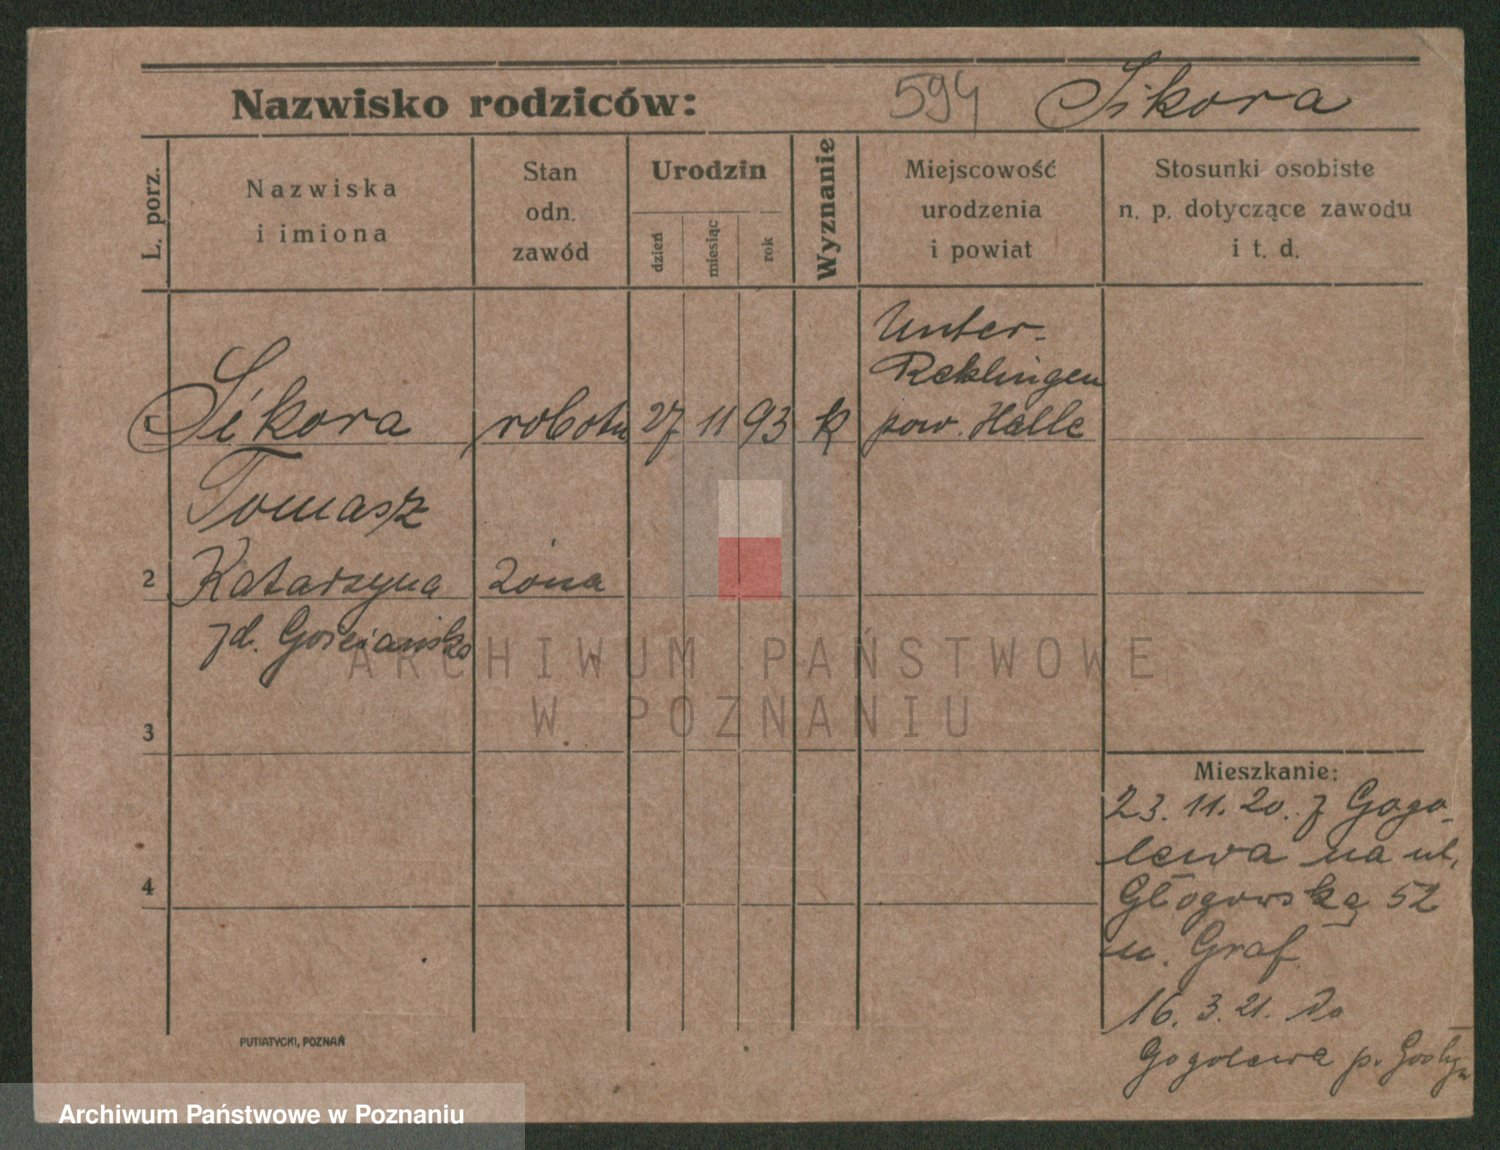 Nazwisko rodziców: 594 Sikora
L. porz.
Nazwiska
i imiona
Stan
odn.
zawód
Urodzin
dzień
miesiąc
rok
Wyznanie
Miejscowość
urodzenia
i powiat
Stosunki osobiste
n. p. dotyczące zawodu
i t. d.
Unter-
Reklingen
1 Sikora robotn 27 11 93 k pow. Halle
Tomasz
2 Katarzyna żona
zd.
ARCHIWUM PAŃSTWOWE
W POZNANIU
3
Mieszkanie:
23.11.20. z Gogo-
lewa na ul.
4
Głogowską 52
u. Graf
16.3.21. do
Gogolewa p. Gostyń
PUTIATYCKI, POZNAŃ
Archiwum Państwowe w Poznaniu